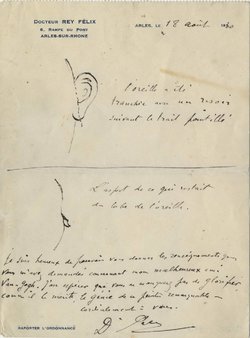 DOCTEUR REY FÉLIX
6, RAMPE DU PONT
ARLES-SUR-RHONE
ARLES, LE 18 août 1930
L'oreille a été
tranchée avec un rasoir
suivant le trait pointillé
L'aspect de ce qui restait
du lobe de l'oreille.
Je suis heureux de pouvoir vous donner les renseignements que
vous m'avez demandés concernant mon malheureux ami
Van-Gogh. J'espère que vous ne manquerez pas de glorifier
comme il le mérite le génie de ce peintre remarquable
cordialement à vous.
Dr Rey
RAPPORTER L'ORDONNANCE